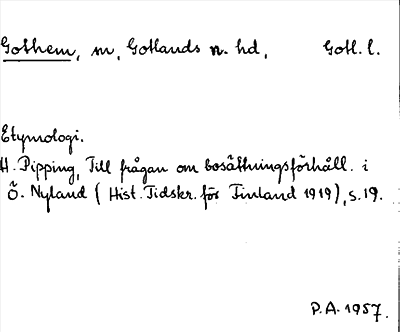 Gothem, m, Gotlands n. hd, Gotl. l.
Etymologi.
H. Pipping, Till frågan om bosättningsförhåll. i
Ö. Nyland (Hist. Tidskr. för Finland 1919), s. 19.
P.A. 1957.